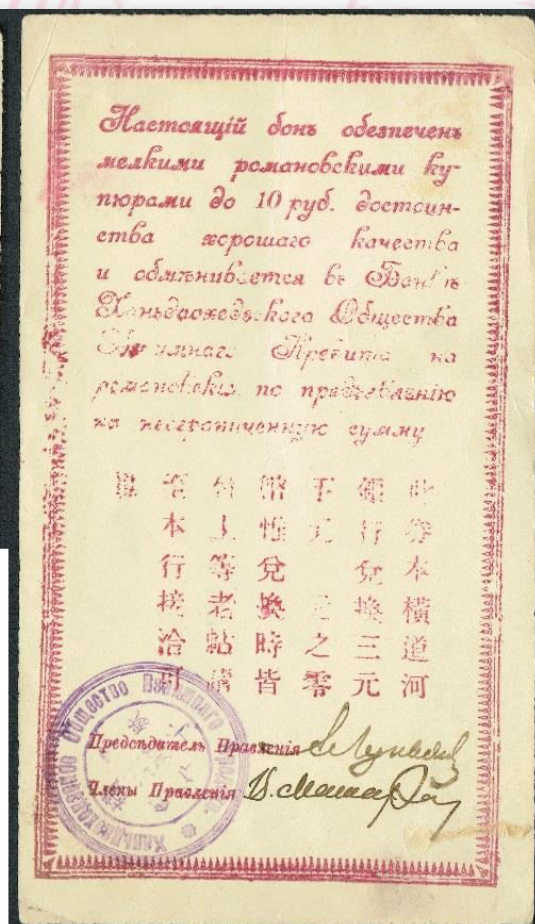 Настоящій бонъ обезпеченъ
мелкими романовскими ку-
пюрами до 10 руб. достоин-
ства хорошаго качества
и обмѣнивается въ Банкѣ
Общества
Взаимнаго Кредита на
по предъявленію
на неограниченную сумму
此券本橫道河
行兌換三元
元之零
幣惟兌換時皆
付上等老帖請
本行接洽可
Общество Взаимнаго
Предсѣдатель Правленія
Члены Правленія